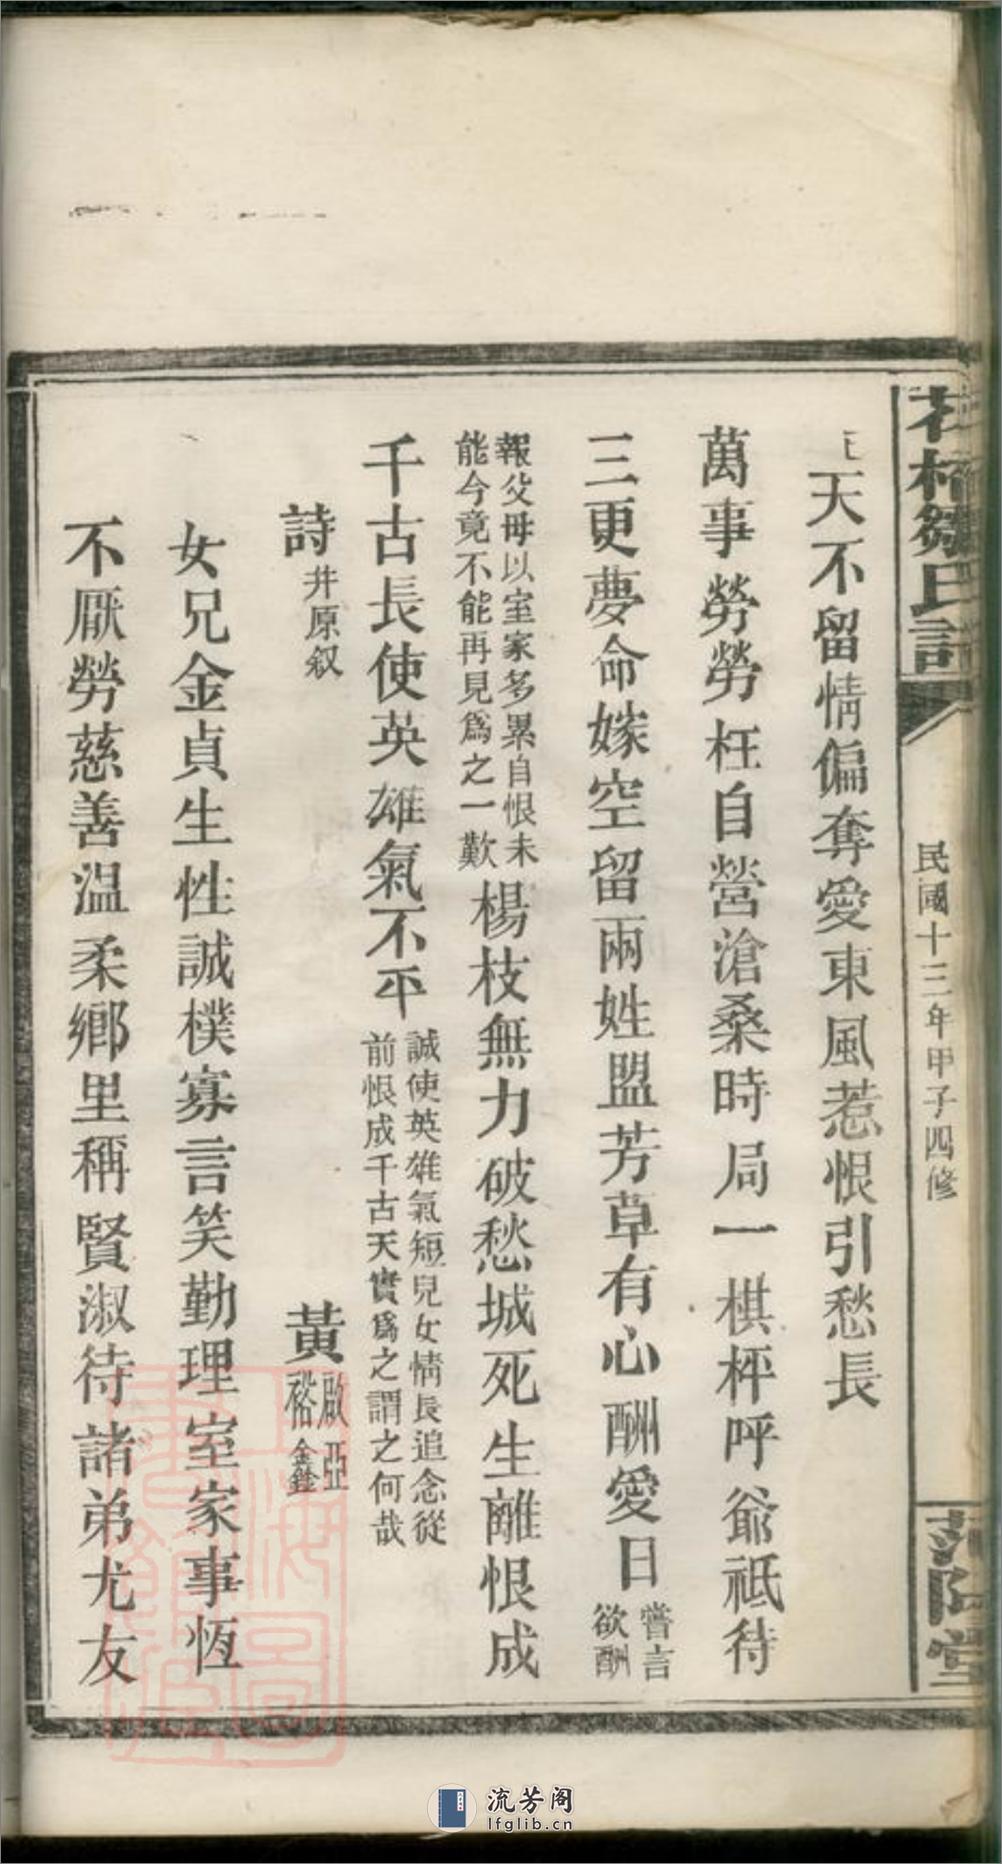 民國十三年甲子四修
天不留情偏奪愛東風惹恨引愁長
萬事勞勞枉自營滄桑時局一棋枰呼爺祗待
三更夢命嫁空留兩姓盟芳草有心酬愛日嘗言欲酬
報父母以室家多累自恨未能今竟不能再見爲之一歎楊枝無力破愁城死生離恨成
千古長使英雄氣不平誠使英雄氣短兒女情長追念從前恨成千古天實爲之謂之何哉
詩井原叙 黃啟亞裕鑫
女兄金貞生性誠樸寡言笑勤理室家事恆
不厭勞慈善温柔鄉里稱賢淑待諸弟尤友
流芳阁
lfglib.cn